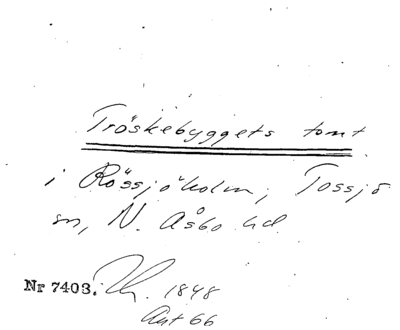 Tröskebyggets tomt
i Rössjöholm, Tossjö
sn, N. Åsbo hd
Nr 7403. 1848
Ant 66